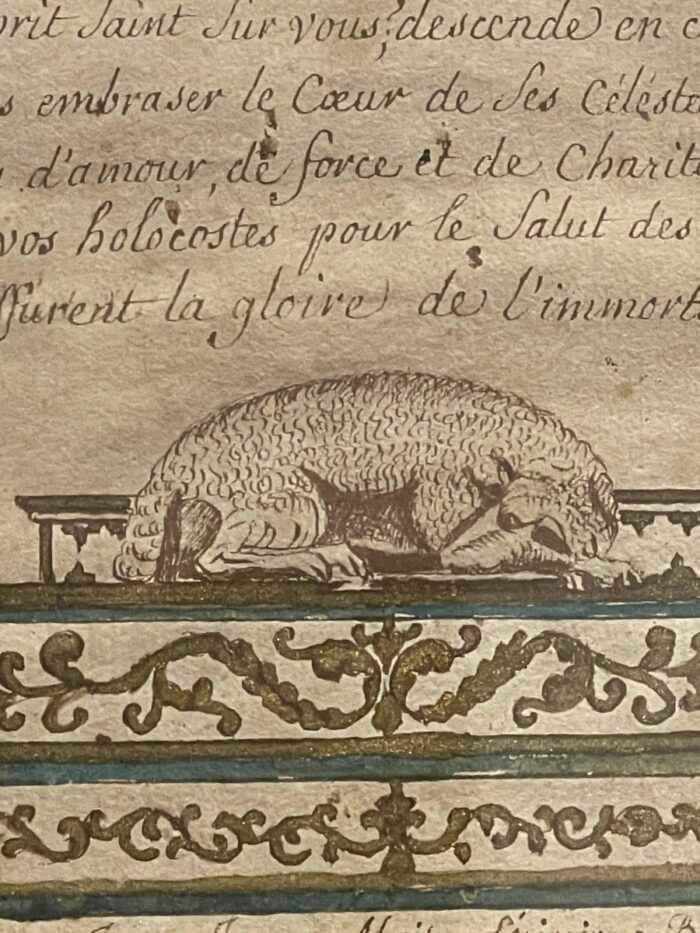 prit Saint Sur vous, descende en c
s embraser le Cœur de Ses Céléste
d'amour, de force et de Charité
vos holocostes pour le Salut des
ssurent la gloire de l'immort